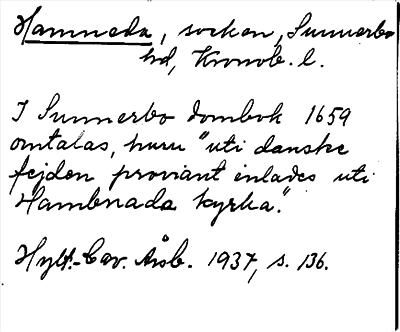 Hamneda, socken, Sunnerbo
hd, Kronob. l.
I Sunnerbo dombok 1659
omtalas, huru "uti danske
fejden proviant inlades uti
Hambnada kyrka."
Hylt.-Cav. Årsb. 1937, s. 136.